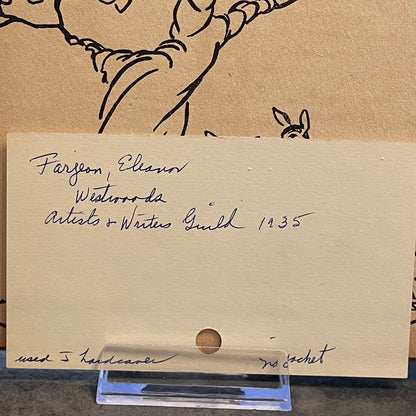 Farjeon, Eleanor
Westwoods
Artists & Writers Guild 1935
used J hardcover no jacket